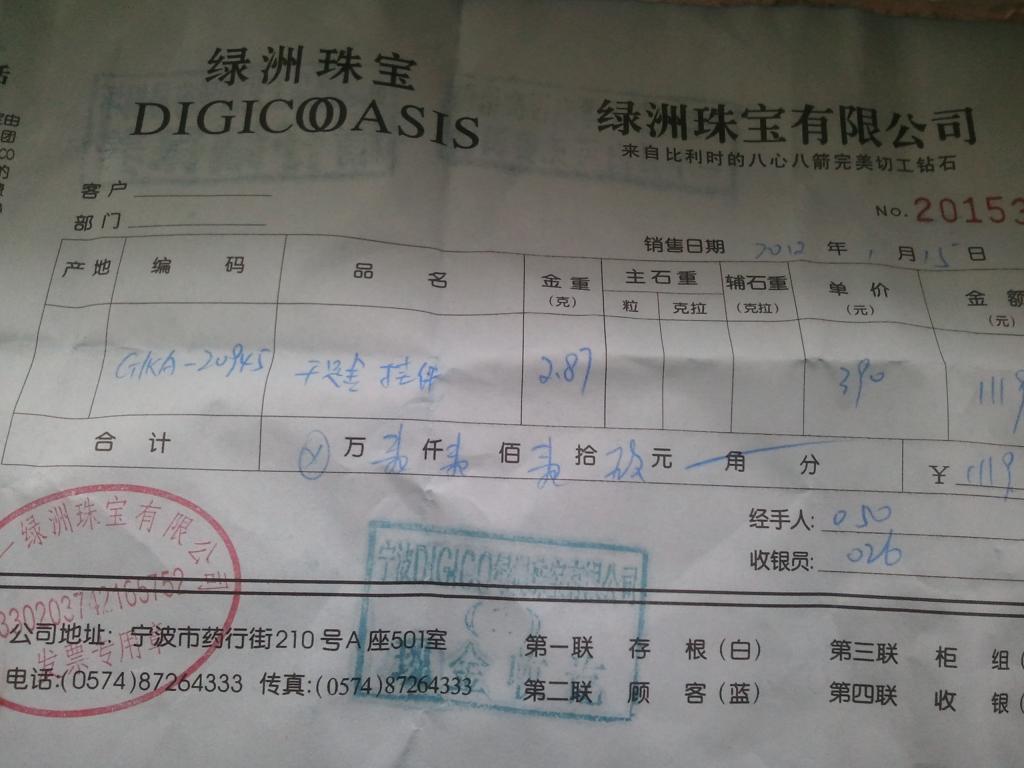 绿洲珠宝
DIGICO OASIS
绿洲珠宝有限公司
来自比利时的八心八箭完美切工钻石
客户
部门
NO. 20153
销售日期 2012 年 1 月 15 日
产地 编码 品名 金重(克) 主石重 粒 克拉 辅石重(克拉) 单价(元) 金额(元)
GKA-20945 千足金 挂件 2.87 390 1119
合计 万 仟 佰 拾 玖 元 角 分 ¥ 1119
经手人: 050
收银员: 026
绿洲珠宝有限公司
330203742165752
发票专用章
宁波DIGICO绿洲珠宝有限公司
公司地址: 宁波市药行街210号A座501室
电话:(0574)87264333 传真:(0574)87264333
第一联 存根(白) 第三联 柜组(
第二联 顾客(蓝) 第四联 收银(